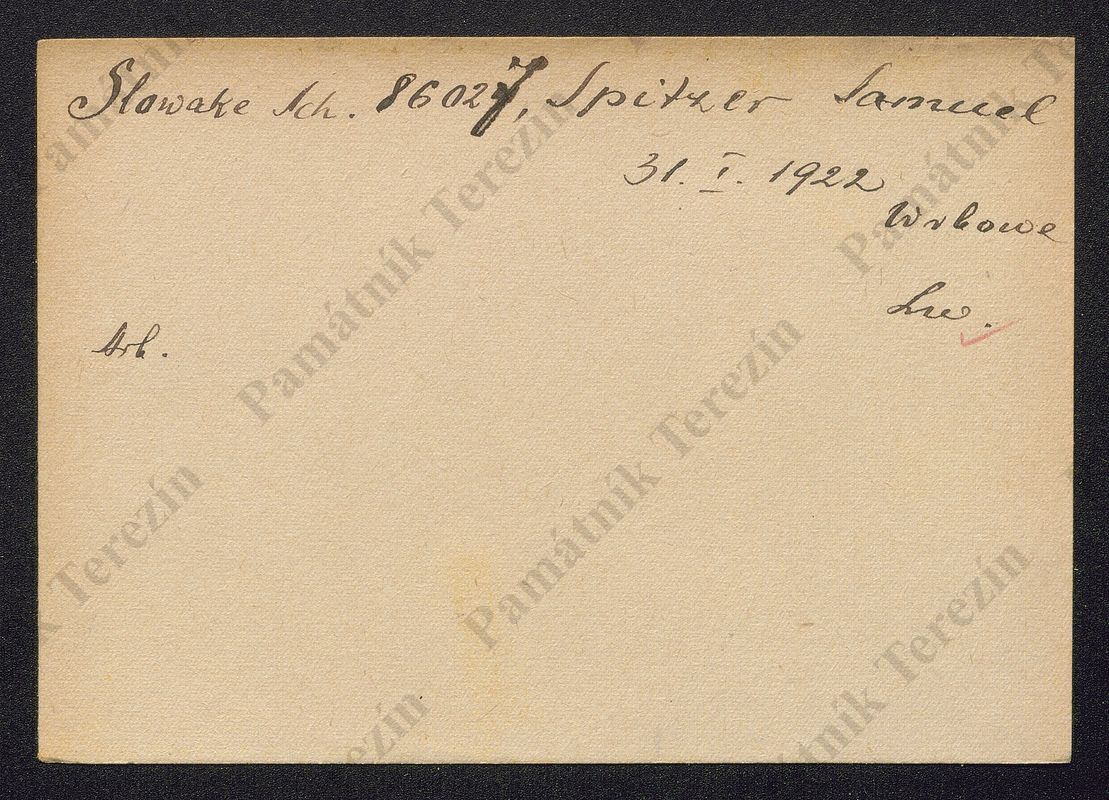 Slowake Sch. 86027, Spitzer Samuel
31. I. 1922
Wrbowe
Lw.
Arb.
Památník Terezín
Památník Terezín
Památník Terezín
Památník Terezín
Památník Terezín
Památník Terezín